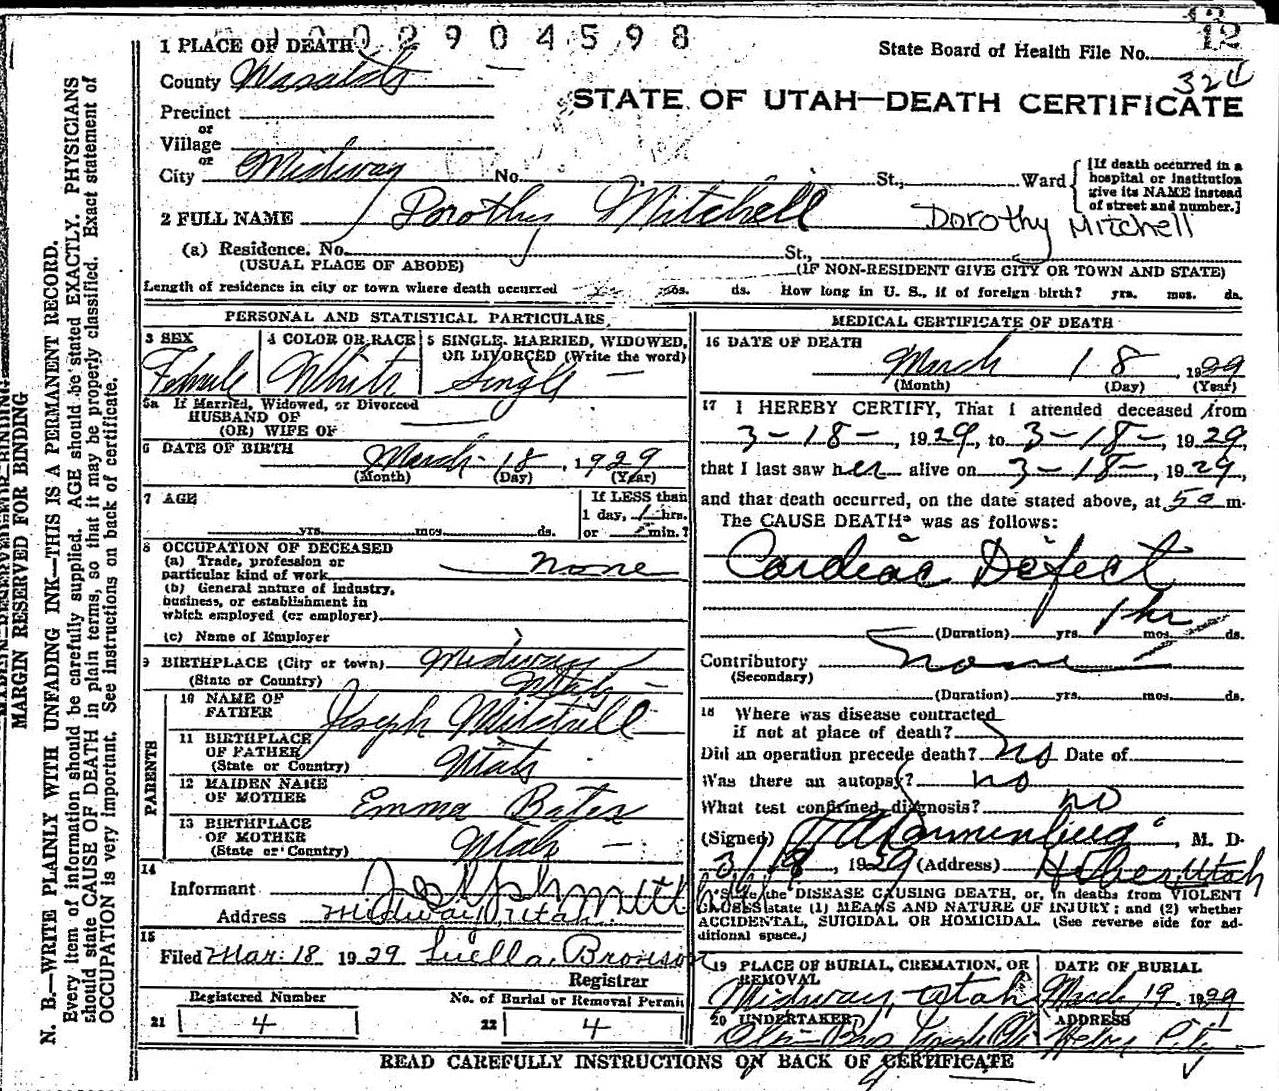 12
0 0 2 9 0 4 5 9 8
State Board of Health File No. 12
324
1 PLACE OF DEATH
County Wasatch
STATE OF UTAH—DEATH CERTIFICATE
Precinct
or
Village
or
City Midway No. St., Ward
[If death occurred in a hospital or institution give its NAME instead of street and number.]
2 FULL NAME Dorothy Mitchell Dorothy Mitchell
(a) Residence. No. St.,
(USUAL PLACE OF ABODE) (IF NON-RESIDENT GIVE CITY OR TOWN AND STATE)
Length of residence in city or town where death occurred mos. ds. How long in U. S., if of foreign birth? yrs. mos. ds.
PERSONAL AND STATISTICAL PARTICULARS
3 SEX 4 COLOR OR RACE 5 SINGLE, MARRIED, WIDOWED, OR DIVORCED (Write the word)
Female White Single —
5a If Married, Widowed, or Divorced
HUSBAND OF
(OR) WIFE OF
6 DATE OF BIRTH March 18, 1929
(Month) (Day) (Year)
7 AGE If LESS than
1 day, 1 hrs.
yrs. mos. ds. or min.?
8 OCCUPATION OF DECEASED
(a) Trade, profession or
particular kind of work none
(b) General nature of industry,
business, or establishment in
which employed (or employer)
(c) Name of Employer
9 BIRTHPLACE (City or town) Midway
(State or Country) Utah —
PARENTS
10 NAME OF
FATHER Joseph Mitchell
11 BIRTHPLACE
OF FATHER
(State or Country) Utah
12 MAIDEN NAME
OF MOTHER Emma Bates
13 BIRTHPLACE
OF MOTHER
(State or Country) Utah —
14
Informant Joseph Mitchell
Address Midway, Utah
15
Filed Mar. 18 1929 Luella Bronson
Registrar
Registered Number No. of Burial or Removal Permit
21 4 22 4
MEDICAL CERTIFICATE OF DEATH
16 DATE OF DEATH
March 18, 1929
(Month) (Day) (Year)
17 I HEREBY CERTIFY, That I attended deceased from
3-18-, 1929, to 3-18-, 1929,
that I last saw her alive on 3-18-, 1929,
and that death occurred, on the date stated above, at 5 a m.
The CAUSE DEATH* was as follows:
Cardiac Defect
1 hr
(Duration) yrs. mos. ds.
Contributory none
(Secondary)
(Duration) yrs. mos. ds.
18 Where was disease contracted
if not at place of death?
Did an operation precede death? no Date of
Was there an autopsy? no
What test confirmed diagnosis? no
(Signed) M. D.
3/18, 1929 (Address) Heber, Utah
*State the DISEASE CAUSING DEATH, or, in deaths from VIOLENT
CAUSES state (1) MEANS AND NATURE OF INJURY; and (2) whether
ACCIDENTAL, SUICIDAL OR HOMICIDAL. (See reverse side for ad-
ditional space.)
19 PLACE OF BURIAL, CREMATION, OR REMOVAL DATE OF BURIAL
Midway Utah March 19, 1929
20 UNDERTAKER ADDRESS
Heber City
READ CAREFULLY INSTRUCTIONS ON BACK OF CERTIFICATE
MARGIN RESERVED FOR BINDING
N. B.—WRITE PLAINLY WITH UNFADING INK—THIS IS A PERMANENT RECORD.
Every item of information should be carefully supplied. AGE should be stated EXACTLY. PHYSICIANS
should state CAUSE OF DEATH in plain terms, so that it may be properly classified. Exact statement of
OCCUPATION is very important. See instructions on back of certificate.